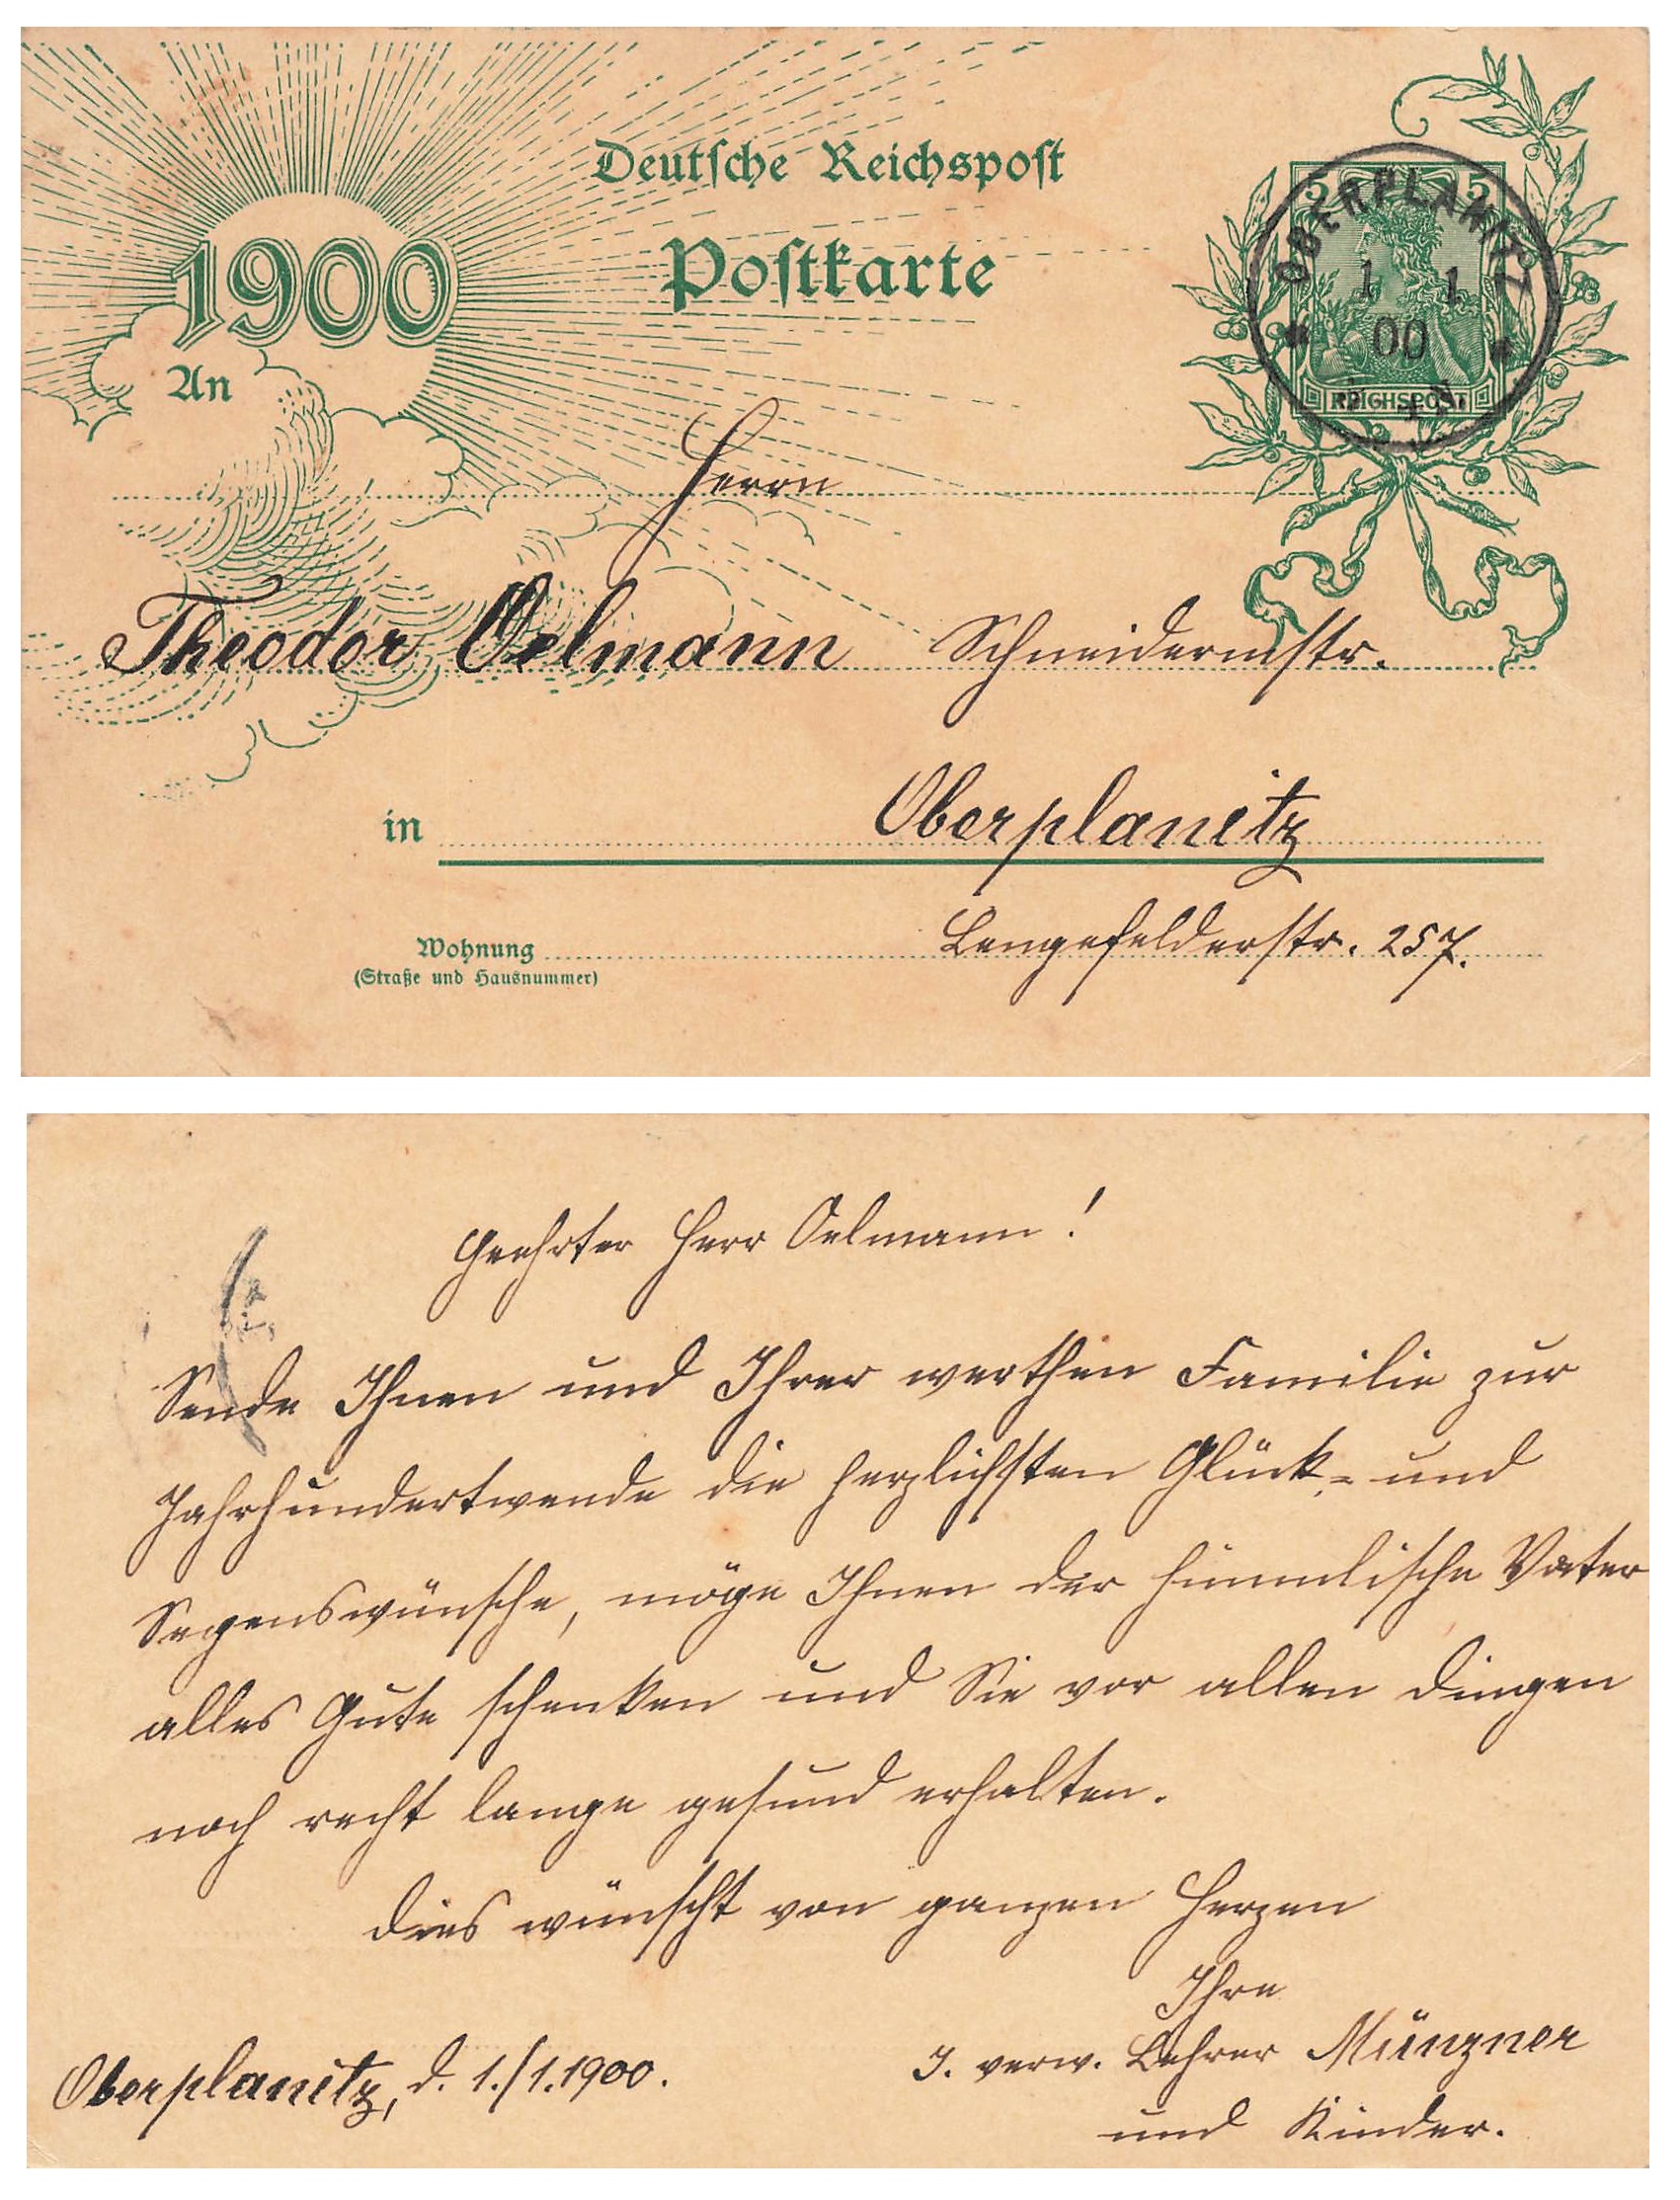 Deutsche Reichspost
Postkarte
1900
5 5
REICHSPOST
OBERPLANITZ
1 1
00
An
Herrn
Theodor Oelmann Schneidermstr.
in Oberplanitz
Wohnung Lengefelderstr. 257.
(Straße und Hausnummer)
Geehrter Herr Oelmann!
Sende Ihnen und Ihrer werthen Familie zur
Jahrhundertwende die herzlichsten Glück- und
Segenswünsche, möge Ihnen der himmlische Vater
alles Gute schenken und Sie vor allen Dingen
noch recht lange gesund erhalten.
Dies wünscht von ganzen Herzen
Ihre
J. verw. Lehrer Münzner
und Kinder.
Oberplanitz, d. 1./1.1900.